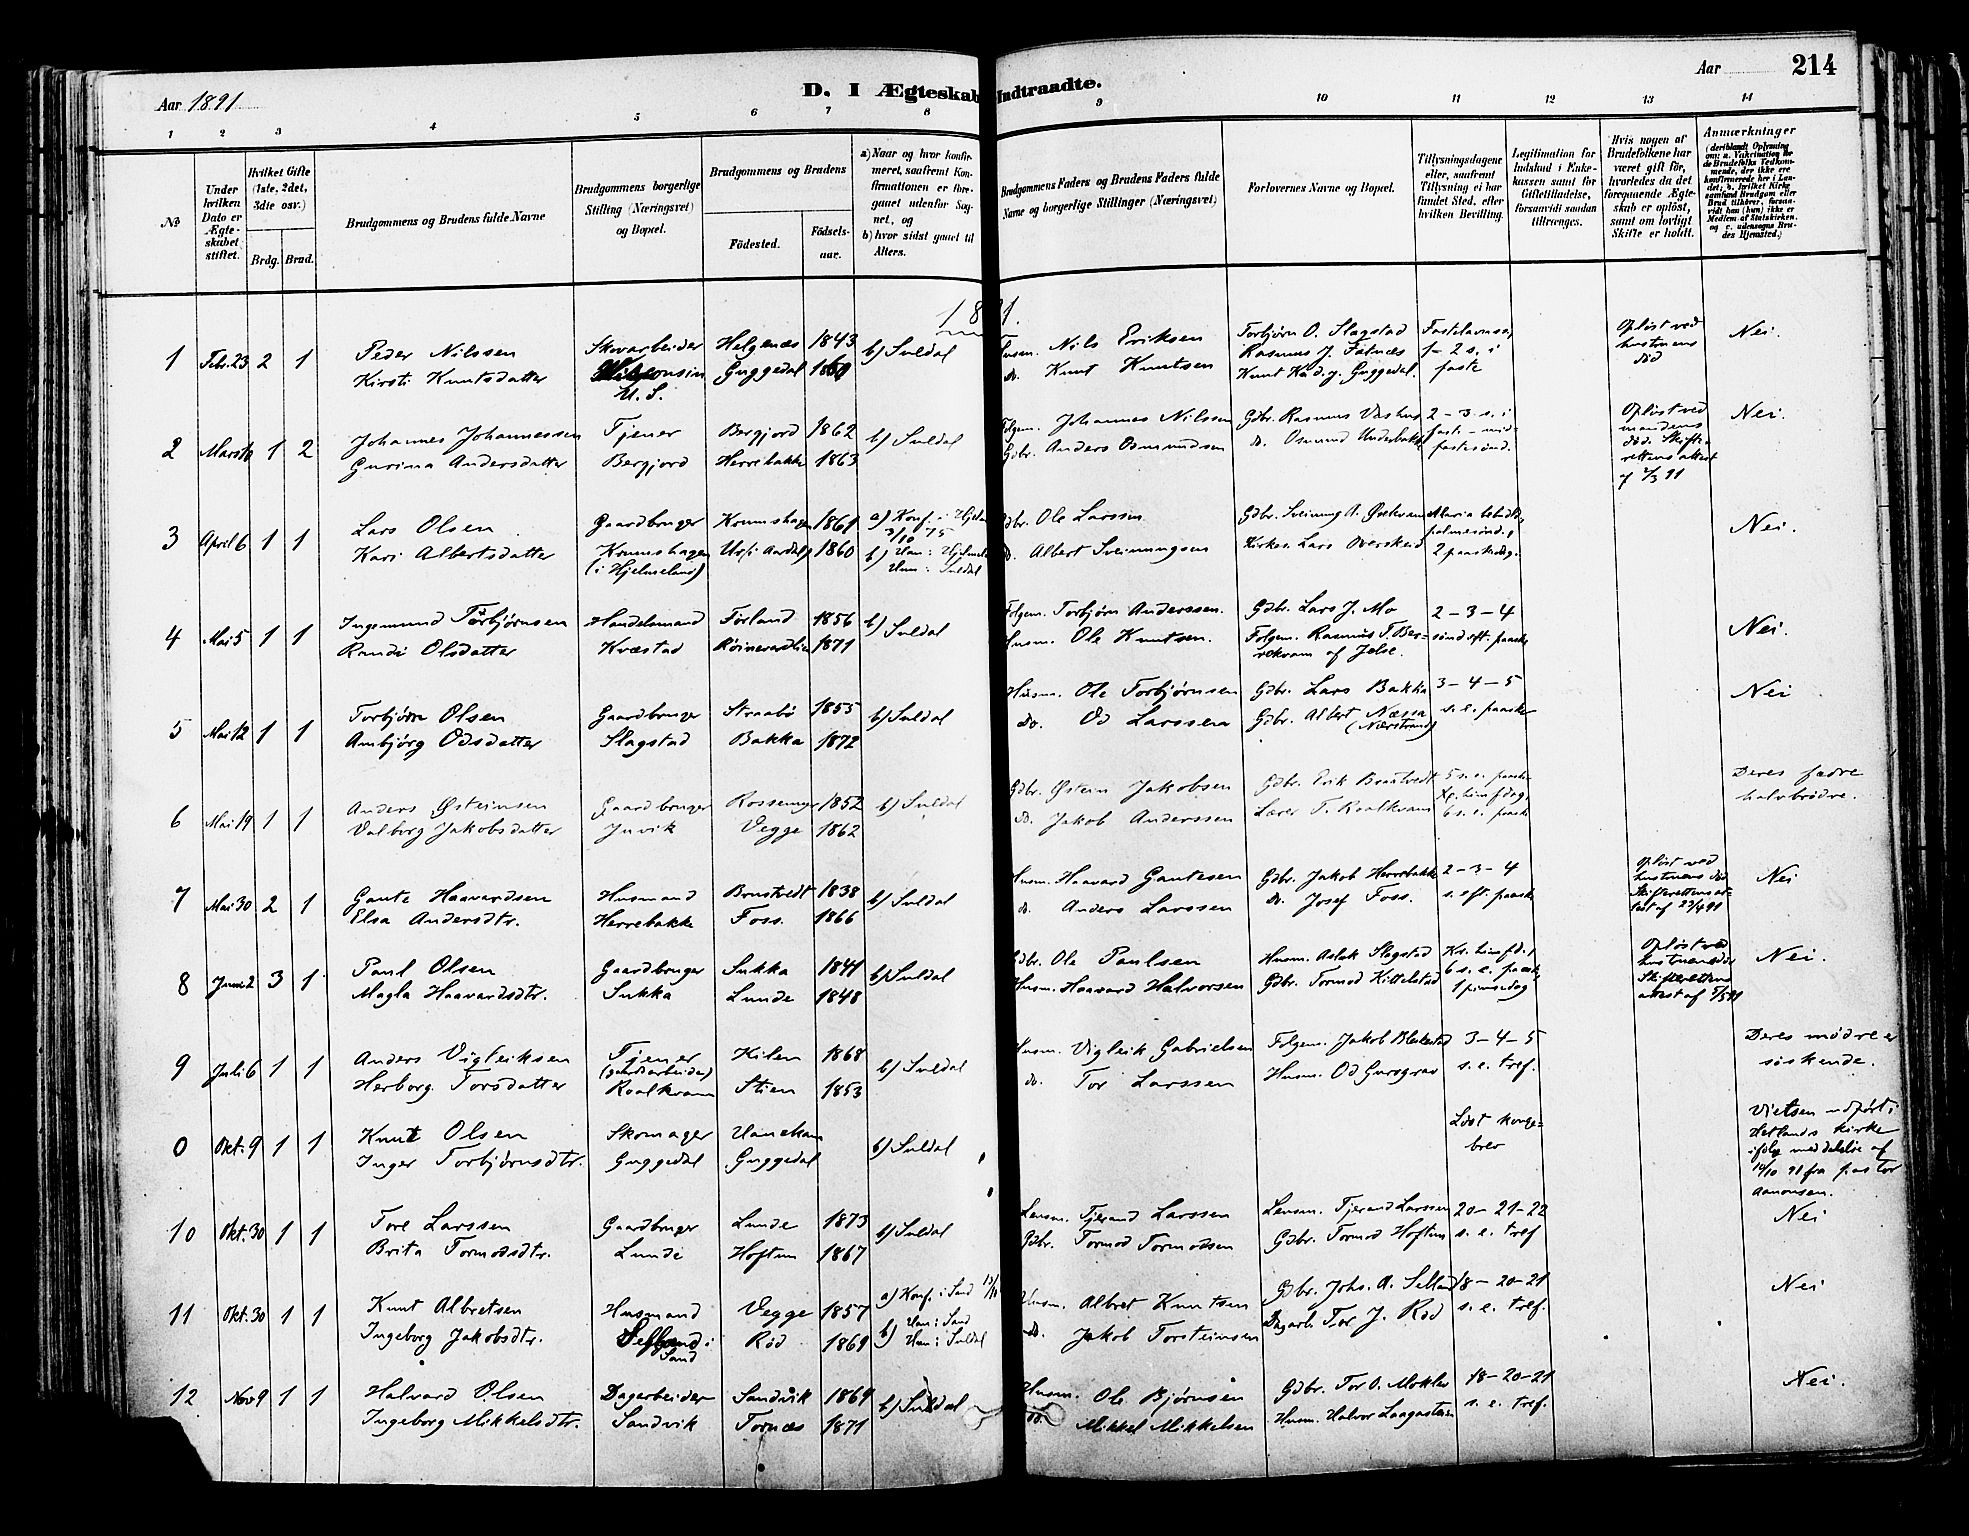 Aar 1891
D. I Ægteskab Indtraadte.
Aar
214
1 2 3 4 5 6 7 8 9 10 11 12 13 14
№
Under hvilken Dato er Ægteskabet stiftet.
Hvilket Gifte (1ste, 2det, 3die osv.)
Brdg. Brud.
Brudgommens og Brudens fulde Navne
Brudgommens borgerlige Stilling (Næringsvei) og Bopæl.
Brudgommens og Brudens
Födested.
Födselsaar.
a) Naar og hvor konfirmeret, saafremt Konfirmationen er foregaaet udenfor Sognet, og
b) hvor sidst gaaet til Alters.
Brudgommens Faders og Brudens Faders fulde Navne og borgerlige Stillinger (Næringsvei)
Forlovernes Navne og Bopæl.
Tillysningsdagene eller, saafremt Tillysning ei har fundet Sted, efter hvilken Bevilling.
Legitimation for Indskud i Enkekassen samt for Giftetilladelse, forsaavidt saadan tiltrænges.
Hvis nogen af Brudefolkene har været gift før, hvorledes da det foregaaende Ægteskab er oplöst, samt om lovligt Skifte er holdt.
Anmærkninger
(deriblandt Oplysning om: a. Vakcination for de Brudefolks Vedkommende, der ikke ere konfirmerede her i Landet; b. hvilket Kirkesamfund Brudgom eller Brud tilhörer, forsaavidt han (hun) ikke er Medlem af Statskirken, og c. udensogns Brudes Hjemsted.)
1891.
1 Febr. 23 2 1 Peder Nilssen Skovarbeider Helgenæs 1843 b) Suldal Husm. Nils Eriksen Torbjørn O. Slagstad Fastelavnss, Opløst ved Nei.
Kirsti Knutsdatter Guggedal 1860 do. Knut Knutsen Rasmus J. 1–2 s. i hustruens
U. S. Knut Guggedal. faste død
2 Marts 10 1 2 Johannes Johannessen Tjener Bergjord 1862 b) Suldal Folgem. Johannes Nilssen Gdbr. Rasmus 2–3 s. i Opløst ved Nei.
Gurina Andersdatter Bergjord Herrebakke 1863 Gdbr. Anders Osmundsen do. Osmund Underbakke faste – mid- mandens
fastesønd. død. Skifte-
rettens attest
af 2/3 91
3 April 6 1 1 Lars Olsen Gaardbruger Krumshagen 1861 a) Konf. i Hjelm. Gdbr. Ole Larsen Gdbr. Sveinung A. Maria beboud. Nei.
3/10 75
Kari Albertsdatter Krumshagen i Aardal 1860 b) Han: Hjelmel. do. Albert Sveinungsen Kirkes. Lars Overskeid palmesønd.,
(i Hjelmeland) Hun: Suldal 2 paaskedag.
4 Mai 5 1 1 Ingemund Torbjørnsen Handelsmand Førland 1856 b) Suldal Folgem. Torbjørn Anderssen. Gdbr. Lars J. Mo 2–3–4 Nei.
Randi Olsdatter Kvæstad Røinevardlien 1871 Husm. Ole Knutsen. Folgem. Rasmus T. Ber- sønd eft. paaske
rekvam af Jelse.
5 Mai 12 1 1 Torbjørn Olsen Gaardbruger Straabø 1855 b) Suldal Husm. Ole Torbjørnsen Gdbr. Lars Bakka 3–4–5 Nei
Ambjørg Odsdatter Slagstad Bakka 1872 do. Od Larssen Gdbr. Albert Næssa s. e. paaske
(Nærstrand)
6 Mai 19 1 1 Anders Østeinsen Gaardbruger 1852 b) Suldal Gdbr. Østein Jakobsen Gdbr. Erik Braatvedt 5 s. e. paaske Deres fædre
Valborg Jakobsdatter Juvik Vegge 1862 do. Jakob Anderssen Lærer T. Roalkvam Kr. himfdag halvbrødre.
6 s. e. paaske
7 Mai 30 2 1 Gaute Haavardsen Husmand Brustvedt 1838 b) Suldal Husm. Haavard Gautesen Gdbr. Jakob Herrebakke 2–3–4 Opløst ved Nei
Elsa Andersdtr. Herrebakke Foss. 1866 do. Anders Larssen do. Josef Foss. s. eft. paaske hustruens død
Skifterettens at-
test af 23/4 91
8 Juni 2 3 1 Paul Olsen Gaardbruger Sukka 1841 b) Suldal Gdbr. Ole Paulsen Husm. Aslak Slagstad Kr. himfd., Opløst ved Nei.
Magla Haavardsdtr. Sukka Lunde 1848 Husm. Haavard Halvorsen Gdbr. Tormod Kittelstad 6 s. e. paaske hustruens død
1 pinsedag Skifterettens
attest af 5/5 91
9 Juli 6 1 1 Anders Vigleiksen Tjener Kilen 1868 b) Suldal Husm. Vigleik Gabrielsen Folgem. Jakob Bleskestad 3–4–5 Deres mødre er
(gaardsarbeider)
Herborg Torsdatter Roalkvam Stien 1853 do. Tor Larssen Husm. Od s. e. tref. søskende.
0 Okt. 9 1 1 Knut Olsen Skomager b) Suldal Løst konge- Vielsen udført i
Inger Torbjørnsdtr. Guggedal Guggedal brev Hetlands kirke
ifølg. meddelelse af
14/10 91 fra pastor
Aanonsen.
10 Okt. 30 1 1 Tore Larssen Gaardbruger Lunde 1873 b) Suldal Lensm. Tjerand Larssen Lensm. Tjerand Larssen 20–21–22 Nei
Brita Tormodsdtr. Lunde Hoftun 1867 Gdbr. Tormod Tormodsen Gdbr. Tormod Hoftun s. e. tref
11 Okt. 30 1 1 Knut Albretsen Husmand Vegge 1857 a) Konf. i Sand Husm. Albret Knutsen Gdbr. Johs. A. Selland 18–20–21 Nei
Ingeborg Jakobsdtr. Selland i Rød 1869 b) Han: Sand do. Jakob Torsteinsen Dagarb. Tor J. Rød s. e. tref.
Sand Hun: Suldal
12 Nov 9 1 1 Halvard Olsen Dagarbeider Sandvik 1869 b) Suldal Husm. Ole Bjørnsen Gdbr. Tor O. Moklev 18–20–21 Nei.
Ingeborg Mikkelsdtr. Sandvik Tornæs 1871 do. Mikkel Mikkelsen Husm. Halvor s. e. tref.